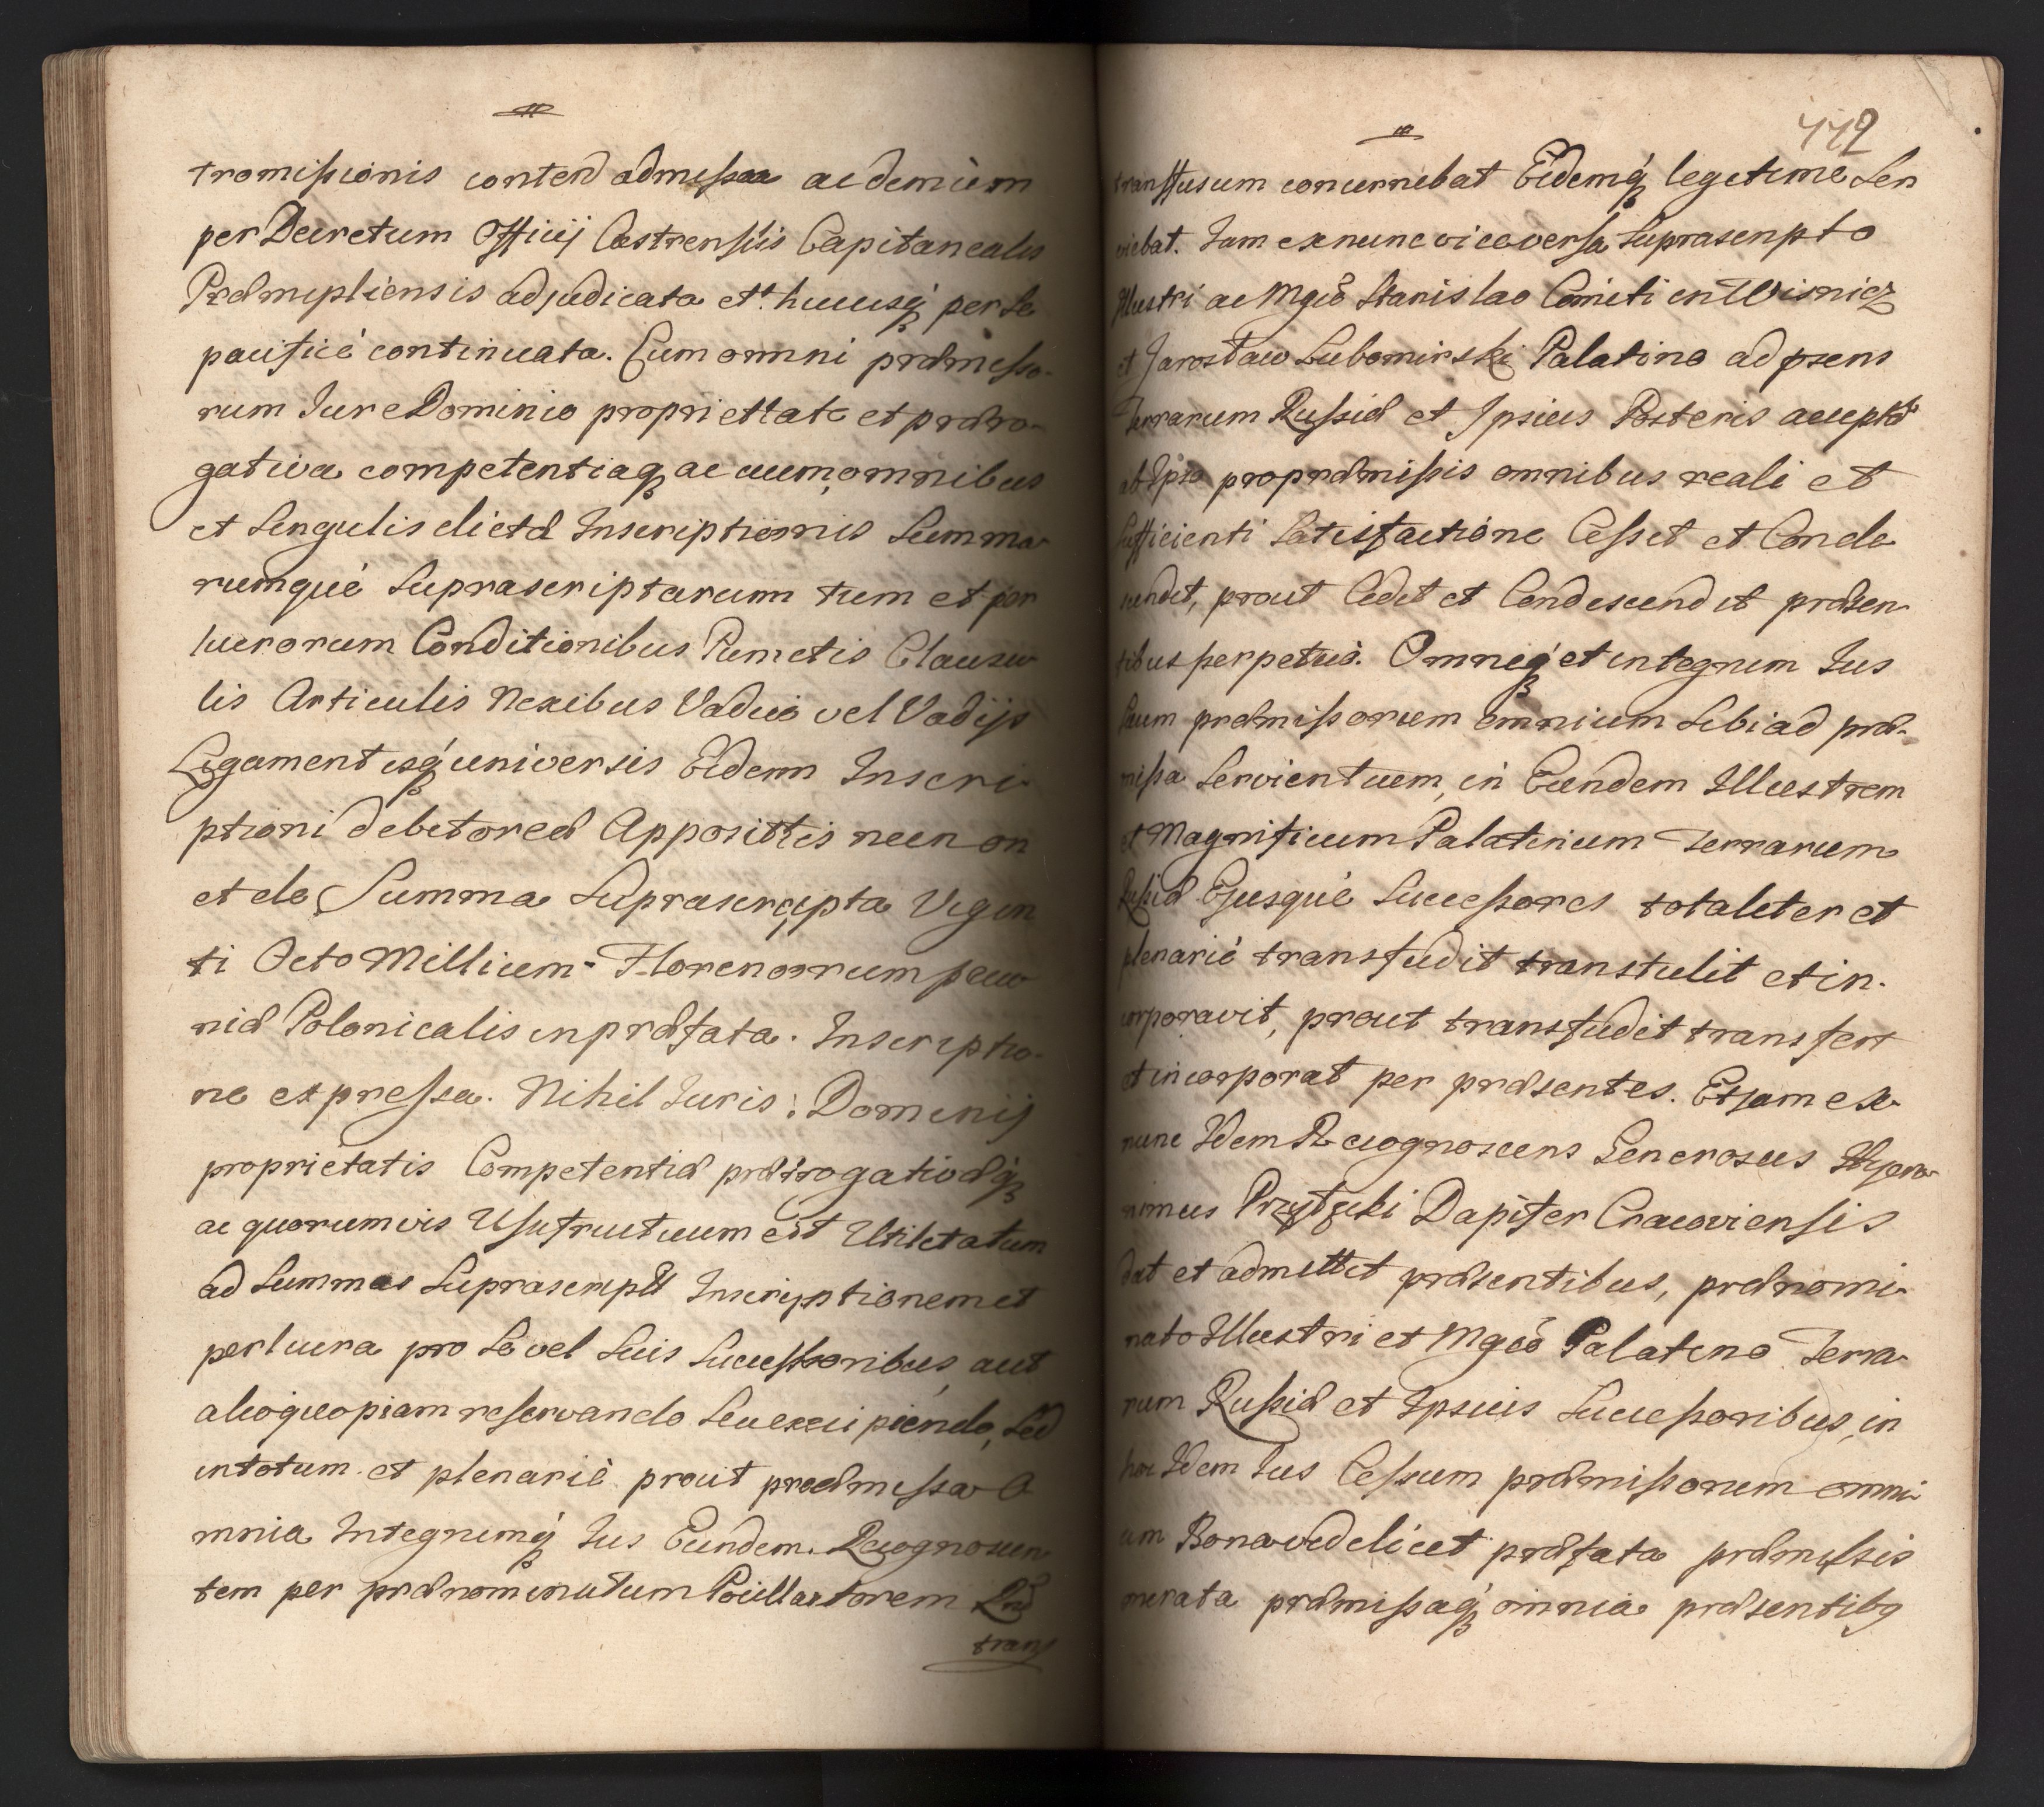 tromissionis conten͠d admissaa ac demùm
per Decretum Officij Castrensis Capitanealis
Præmysliensis adjudicata et hucusq́ per Se
pacificè continuata. Cum omni præmisso-
rum Jure Dominio propriettate et præro-
gativa competentiaq, ac cum omnibus
et Singulis dictæ Inscriptionis Summa
rumquè Suprascriptarum tum et per
lucrorum Conditionibus Punctis Clausu
lis Articulis Nexibus Vadio vel Vadijs
Ligamentisq́ universis Eidem Inscri
ptioni debitoreæ Apposittis necnon
et de Summa Suprascripta Vigin
ti Octo Millium Florenorum pecu
niæ Polonicalis in præfata Inscriptio-
ne expressa. Nihil Juris: Dominij
proprietatis Competentiæ prærogativæq́
ac quorumvis Usufructuum est Utilitatum
ad Summas Suprascriptt Inscriptionem et
perlucra pro Se vel Suis Successoribus aut
alioquopiam reservando Seu excipiendo, Sed
intotum et plenariè prout præmissa O
mnia Integrumq́ Jus Eundem Recognoscen
tem per prænominatum
trans
112
transfusum concernebat Eidemq́ legitime Ser
viebat. Iam exnunc viceversa Suprascripto
Illustri ac Mgco Stanislao Comiti in Wisnicz
et Jarosław Lubomirski Palatino ad præns
Terrarum Russiæ et Ipsius Posteris accepta
ab Ipso pro præmissis omnibus reali et
Sufficienti Satisfactione Cessit et Conde
scendit, prout Cedit et Condescendit præsen
tibus perpetuò. Omneq́ et integrum Jus
Suum præmissorum omnium Sibi ad præ-
missa Servientuem, in Eundem Illustrem
et Magnificum Palatinum Terrarum
Russiæ Ejusquè Successores totaliter et
plenariè transfudit transtulit et in-
corporavit, prout transfudit transfert
et incorporat per præsentes. Et jam ex
nunc Idem Recognoscens Generosus Hyero
nimus Przyłęcki Dapifer Cracoviensis
dat et admittit præsentibus, prænomi
nato Illustri et Mgco Palatino Terra
rum Russiæ et Ipsius Successoribus, in
hoc Idem Jus Cessum præmissorum omni
um Bona videlicet præfata præmissis
merata præmissaq́ omnia præsentibq